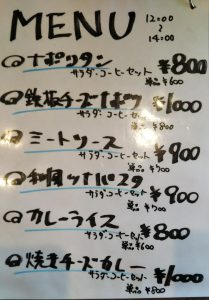 MENU 12:00
～
14:00
ナポリタン ¥800
サラダ・コーヒーセット 単品¥600
鉄板チーズナポリ ¥1000
サラダ・コーヒーセット 単品¥800
ミートソース ¥900
サラダ・コーヒーセット 単品¥700
和風ツナパスタ ¥900
サラダ・コーヒーセット 単品¥700
カレーライス ¥800
サラダ・コーヒーセット 単品¥600
焼きチーズカレー ¥1000
サラダ・コーヒーセット 単品¥800